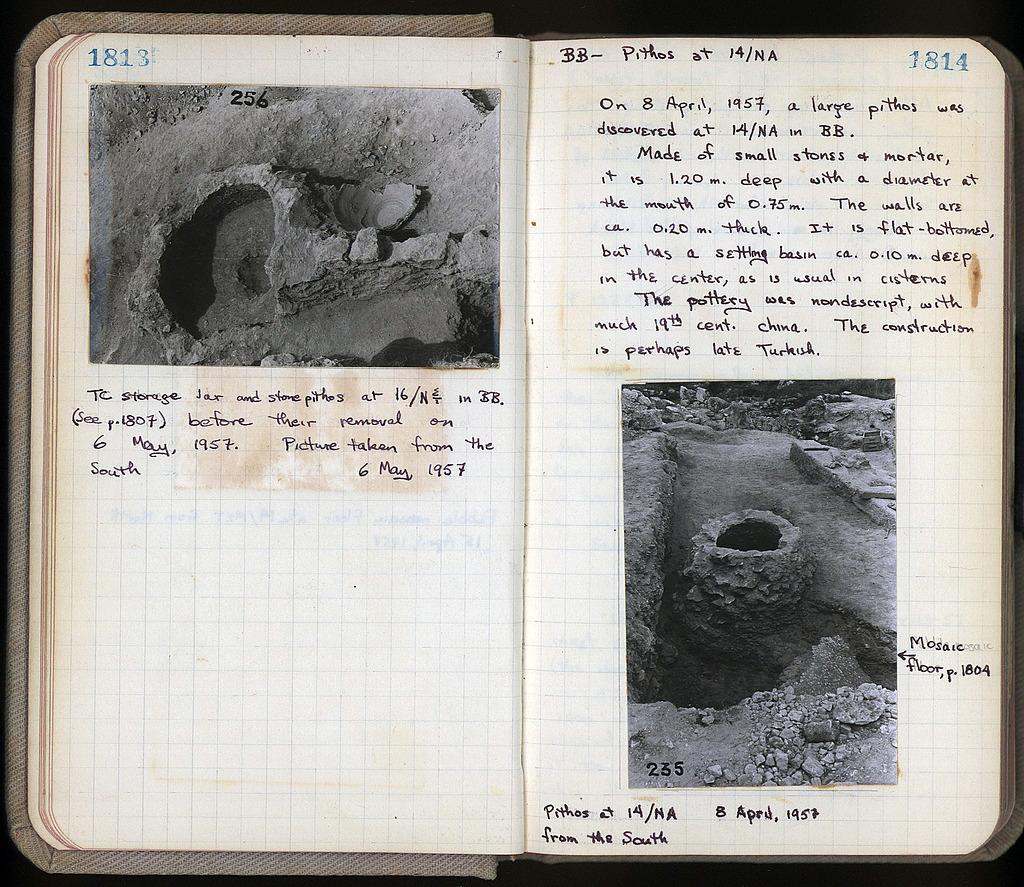 1813
256
TC storage Jar and stone pithos at 16/N in BB.
(See p.1807) before their removal on
6 May, 1957. Picture taken from the
South 6 May, 1957
BB- Pithos at 14/NA
1814
On 8 April, 1957, a large pithos was
discovered at 14/NA in BB.
Made of small stones & mortar,
it is 1.20 m. deep with a diameter at
the mouth of 0.75m. The walls are
ca. 0.20 m. thick. It is flat-bottomed,
but has a settling basin ca. 0.10 m. deep
in the center, as is usual in cisterns
The pottery was nondescript, with
much 19th cent. china. The construction
is perhaps late Turkish.
Mosaic
floor, p. 1804
235
Pithos at 14/NA 8 April, 1957
from the South